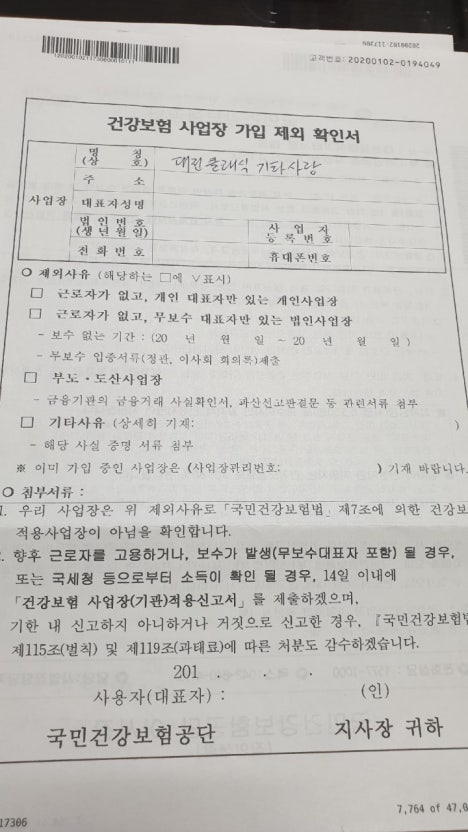 20200102-117306
1202001021173060000010111
고객번호: 20200102-0194049
건강보험 사업장 가입 제외 확인서
사업장
명 칭
(상 호)
대전클래식 기타사랑
주 소
대표자성명
법인번호
(생년월일)
사 업 자
등록번호
전화번호
휴대폰번호
○ 제외사유 (해당하는 □에 ∨표시)
□ 근로자가 없고, 개인 대표자만 있는 개인사업장
□ 근로자가 없고, 무보수 대표자만 있는 법인사업장
- 보수 없는 기간 : (20 년 월 일 ~ 20 년 월 일 )
- 무보수 입증서류(정관, 이사회 회의록)제출
□ 부도·도산사업장
- 금융기관의 금융거래 사실확인서, 파산선고판결문 등 관련서류 첨부
□ 기타사유 (상세히 기재: )
- 해당 사실 증명 서류 첨부
※ 이미 가입 중인 사업장은 (사업장관리번호: ) 기재 바랍니다.
○ 첨부서류 :
1. 우리 사업장은 위 제외사유로「국민건강보험법」제7조에 의한 건강보
적용사업장이 아님을 확인합니다.
2. 향후 근로자를 고용하거나, 보수가 발생(무보수대표자 포함) 될 경우,
또는 국세청 등으로부터 소득이 확인 될 경우, 14일 이내에
「건강보험 사업장(기관)적용신고서」를 제출하겠으며,
기한 내 신고하지 아니하거나 거짓으로 신고한 경우, 『국민건강보험법
제115조(벌칙) 및 제119조(과태료)에 따른 처분도 감수하겠습니다.
201 . . .
사용자(대표자) : (인)
국민건강보험공단 지사장 귀하
7,764 of 47,0
17306